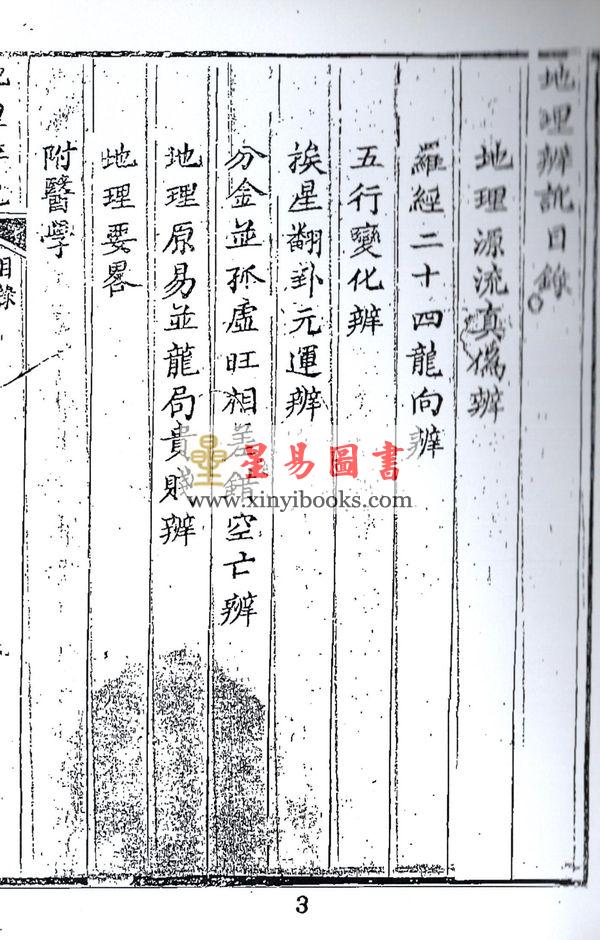 地理辨訛目錄
地理源流真偽辨
羅經二十四龍向辨
五行變化辨
挨星翻卦元運辨
分金並孤虛旺相差錯空亡辨
地理原易並龍局貴賤辨
地理要畧
附醫學
目錄
星易圖書
www.xinyibooks.com
3